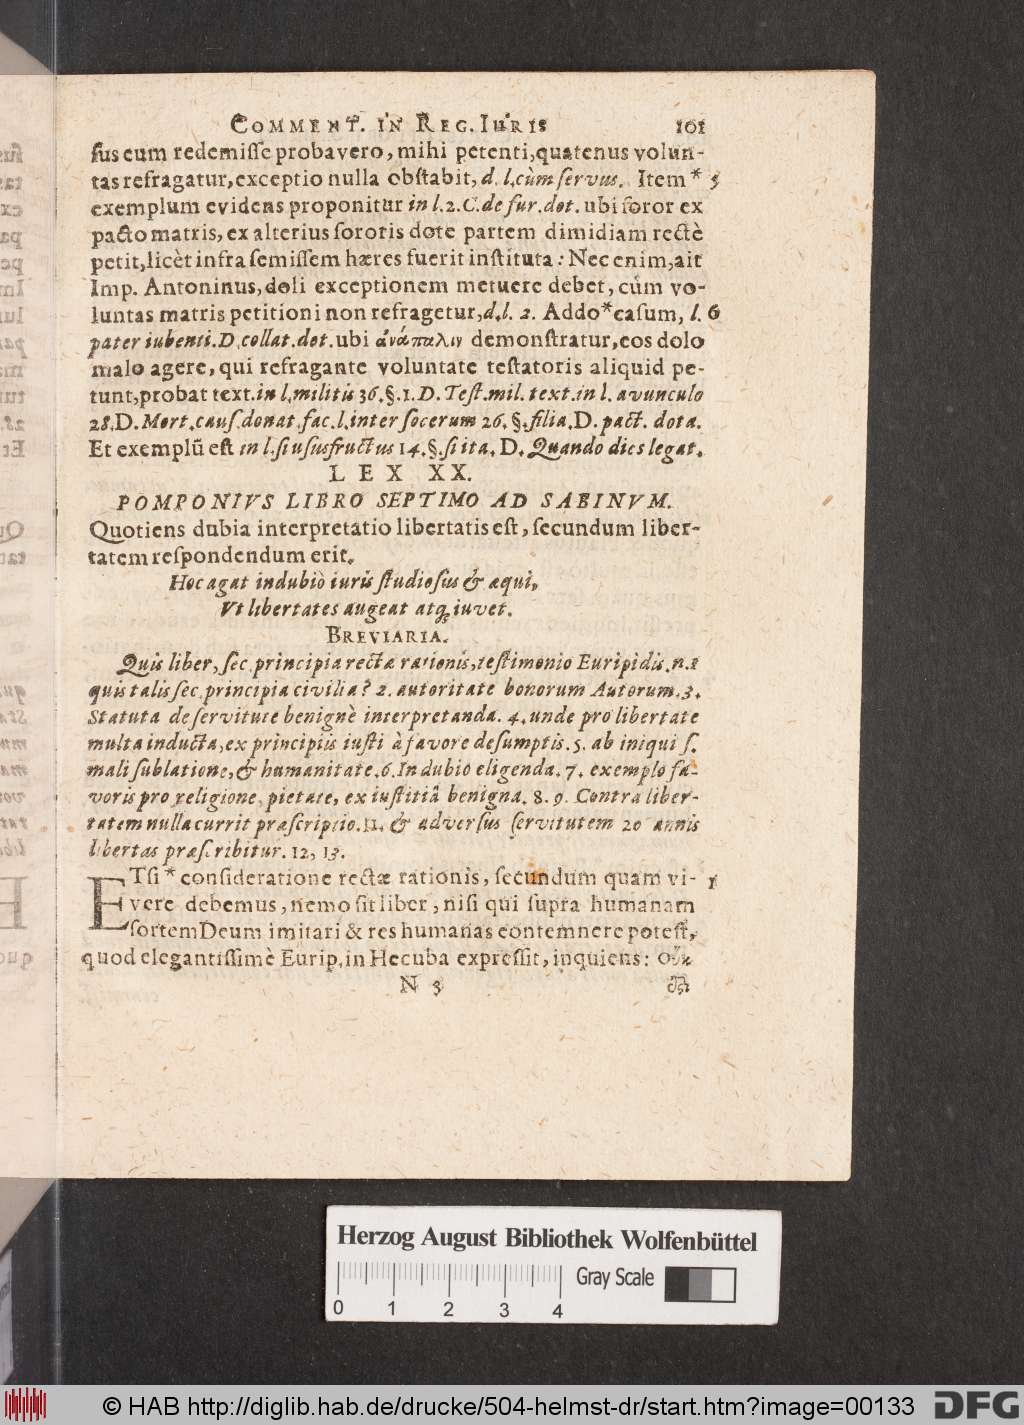 COMMENT. IN REG. IURIS 101
sus eum redemisse probavero, mihi petenti, quatenus volun-
tas refragatur, exceptio nulla obstabit, d. l. cùm servus. Item * 5
exemplum evidens proponitur in l. 2. C. de fur. dot. ubi soror ex
pacto matris, ex alterius sororis dote partem dimidiam rectè
petit, licèt infra semissem hæres fuerit instituta: Nec enim, ait
Imp. Antoninus, doli exceptionem metuere debet, cùm vo-
luntas matris petitioni non refragetur, d. l. 2. Addo * casum, l. 6
pater iubenti. D. collat. dot. ubi ἀνάπαλιν demonstratur, eos dolo
malo agere, qui refragante voluntate testatoris aliquid pe-
tunt, probat text. in l. militis 36. §. 1. D. Test. mil. text. in l. avunculo
28. D. Mort. caus. donat. fac. l. inter socerum 26. §. filia. D. pact. dota.
Et exemplū est in l. si ususfructus 14. §. si ita. D. Quando dies legat.
LEX XX.
POMPONIVS LIBRO SEPTIMO AD SABINVM.
Quotiens dubia interpretatio libertatis est, secundum liber-
tatem respondendum erit.
Hoc agat indubiò iuris studiosus & æqui,
Vt libertates augeat atq; iuvet.
BREVIARIA.
Quis liber, sec. principia rectæ rationis, testimonio Euripidis. n. 1
quis talis sec. principia civilia? 2. autoritate bonorum Autorum. 3.
Statuta de servitute benignè interpretanda. 4. unde pro libertate
multa inducta, ex principiis iusti à favore desumptis. 5. ab iniqui s.
mali sublatione, & humanitate. 6. In dubio eligenda. 7. exemplo fa-
voris pro religione, pietate, ex iustitiâ benigna. 8. 9. Contra liber-
tatem nulla currit præscriptio. 11. & adversus servitutem 20 annis
libertas præscribitur. 12, 13.
ETsi * consideratione rectæ rationis, secundum quam vi- 1
vere debemus, nemo sit liber, nisi qui supra humanam
sortem Deum imitari & res humanas contemnere potest,
quod elegantissimè Eurip. in Hecuba expressit, inquiens: Οὐκ
N 3
Herzog August Bibliothek Wolfenbüttel
Gray Scale
0 1 2 3 4
© HAB http://diglib.hab.de/drucke/504-helmst-dr/start.htm?image=00133
DFG